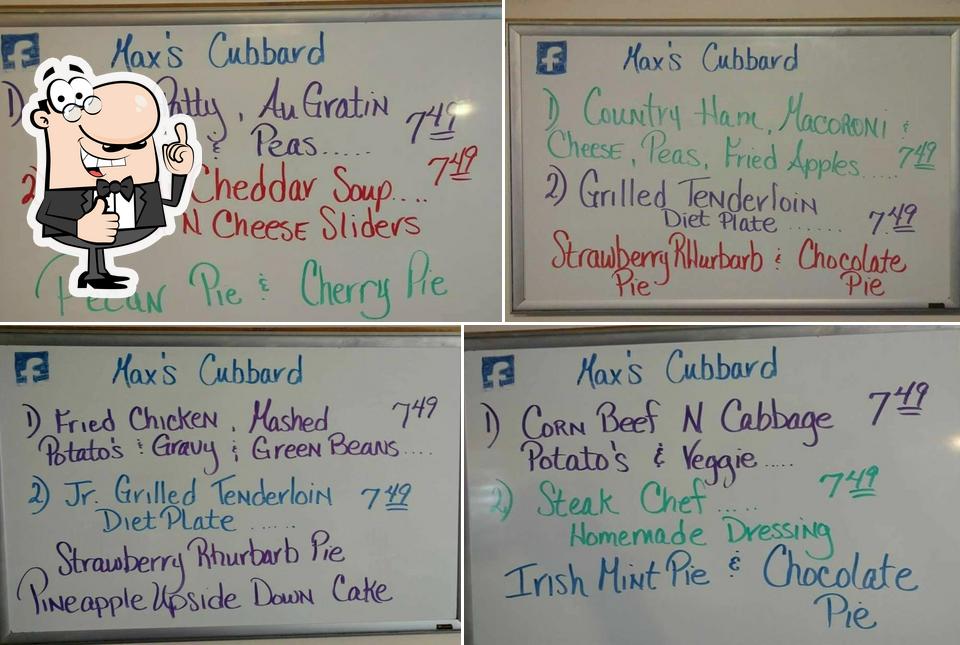 Max's Cubbard
1) Patty, Au Gratin
& Peas..... 7.49
2) Cheddar Soup.... 7.49
N Cheese Sliders
Pecan Pie & Cherry Pie
Max's Cubbard
1) Country Ham, Macoroni &
Cheese, Peas, Fried Apples..... 7.49
2) Grilled Tenderloin
Diet Plate ....... 7.49
Strawberry Rhurbarb & Chocolate
Pie Pie
Max's Cubbard
1) Fried Chicken, Mashed 7.49
Potato's & Gravy & Green Beans....
2) Jr. Grilled Tenderloin 7.49
Diet Plate ......
Strawberry Rhurbarb Pie
Pineapple Upside Down Cake
Max's Cubbard
1) Corn Beef N Cabbage 7.49
Potato's & Veggie.....
2) Steak Chef ..... 7.49
Homemade Dressing
Irish Mint Pie & Chocolate
Pie